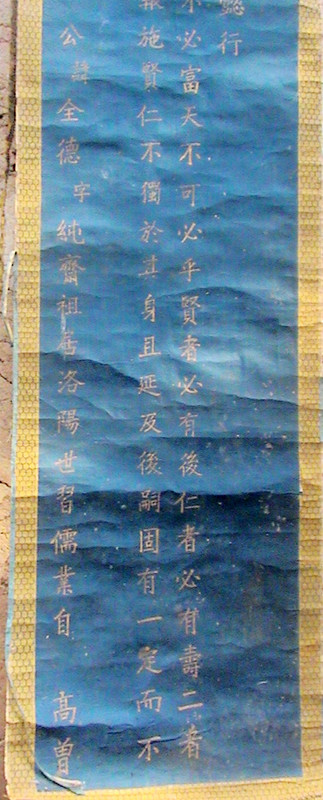 懿行
不必富天不可必乎賢者必有後仁者必有壽二者
報施賢仁不獨於其身且延及後嗣固有一定而不
公諱全德字純齋祖居洛陽世習儒業自 高曾